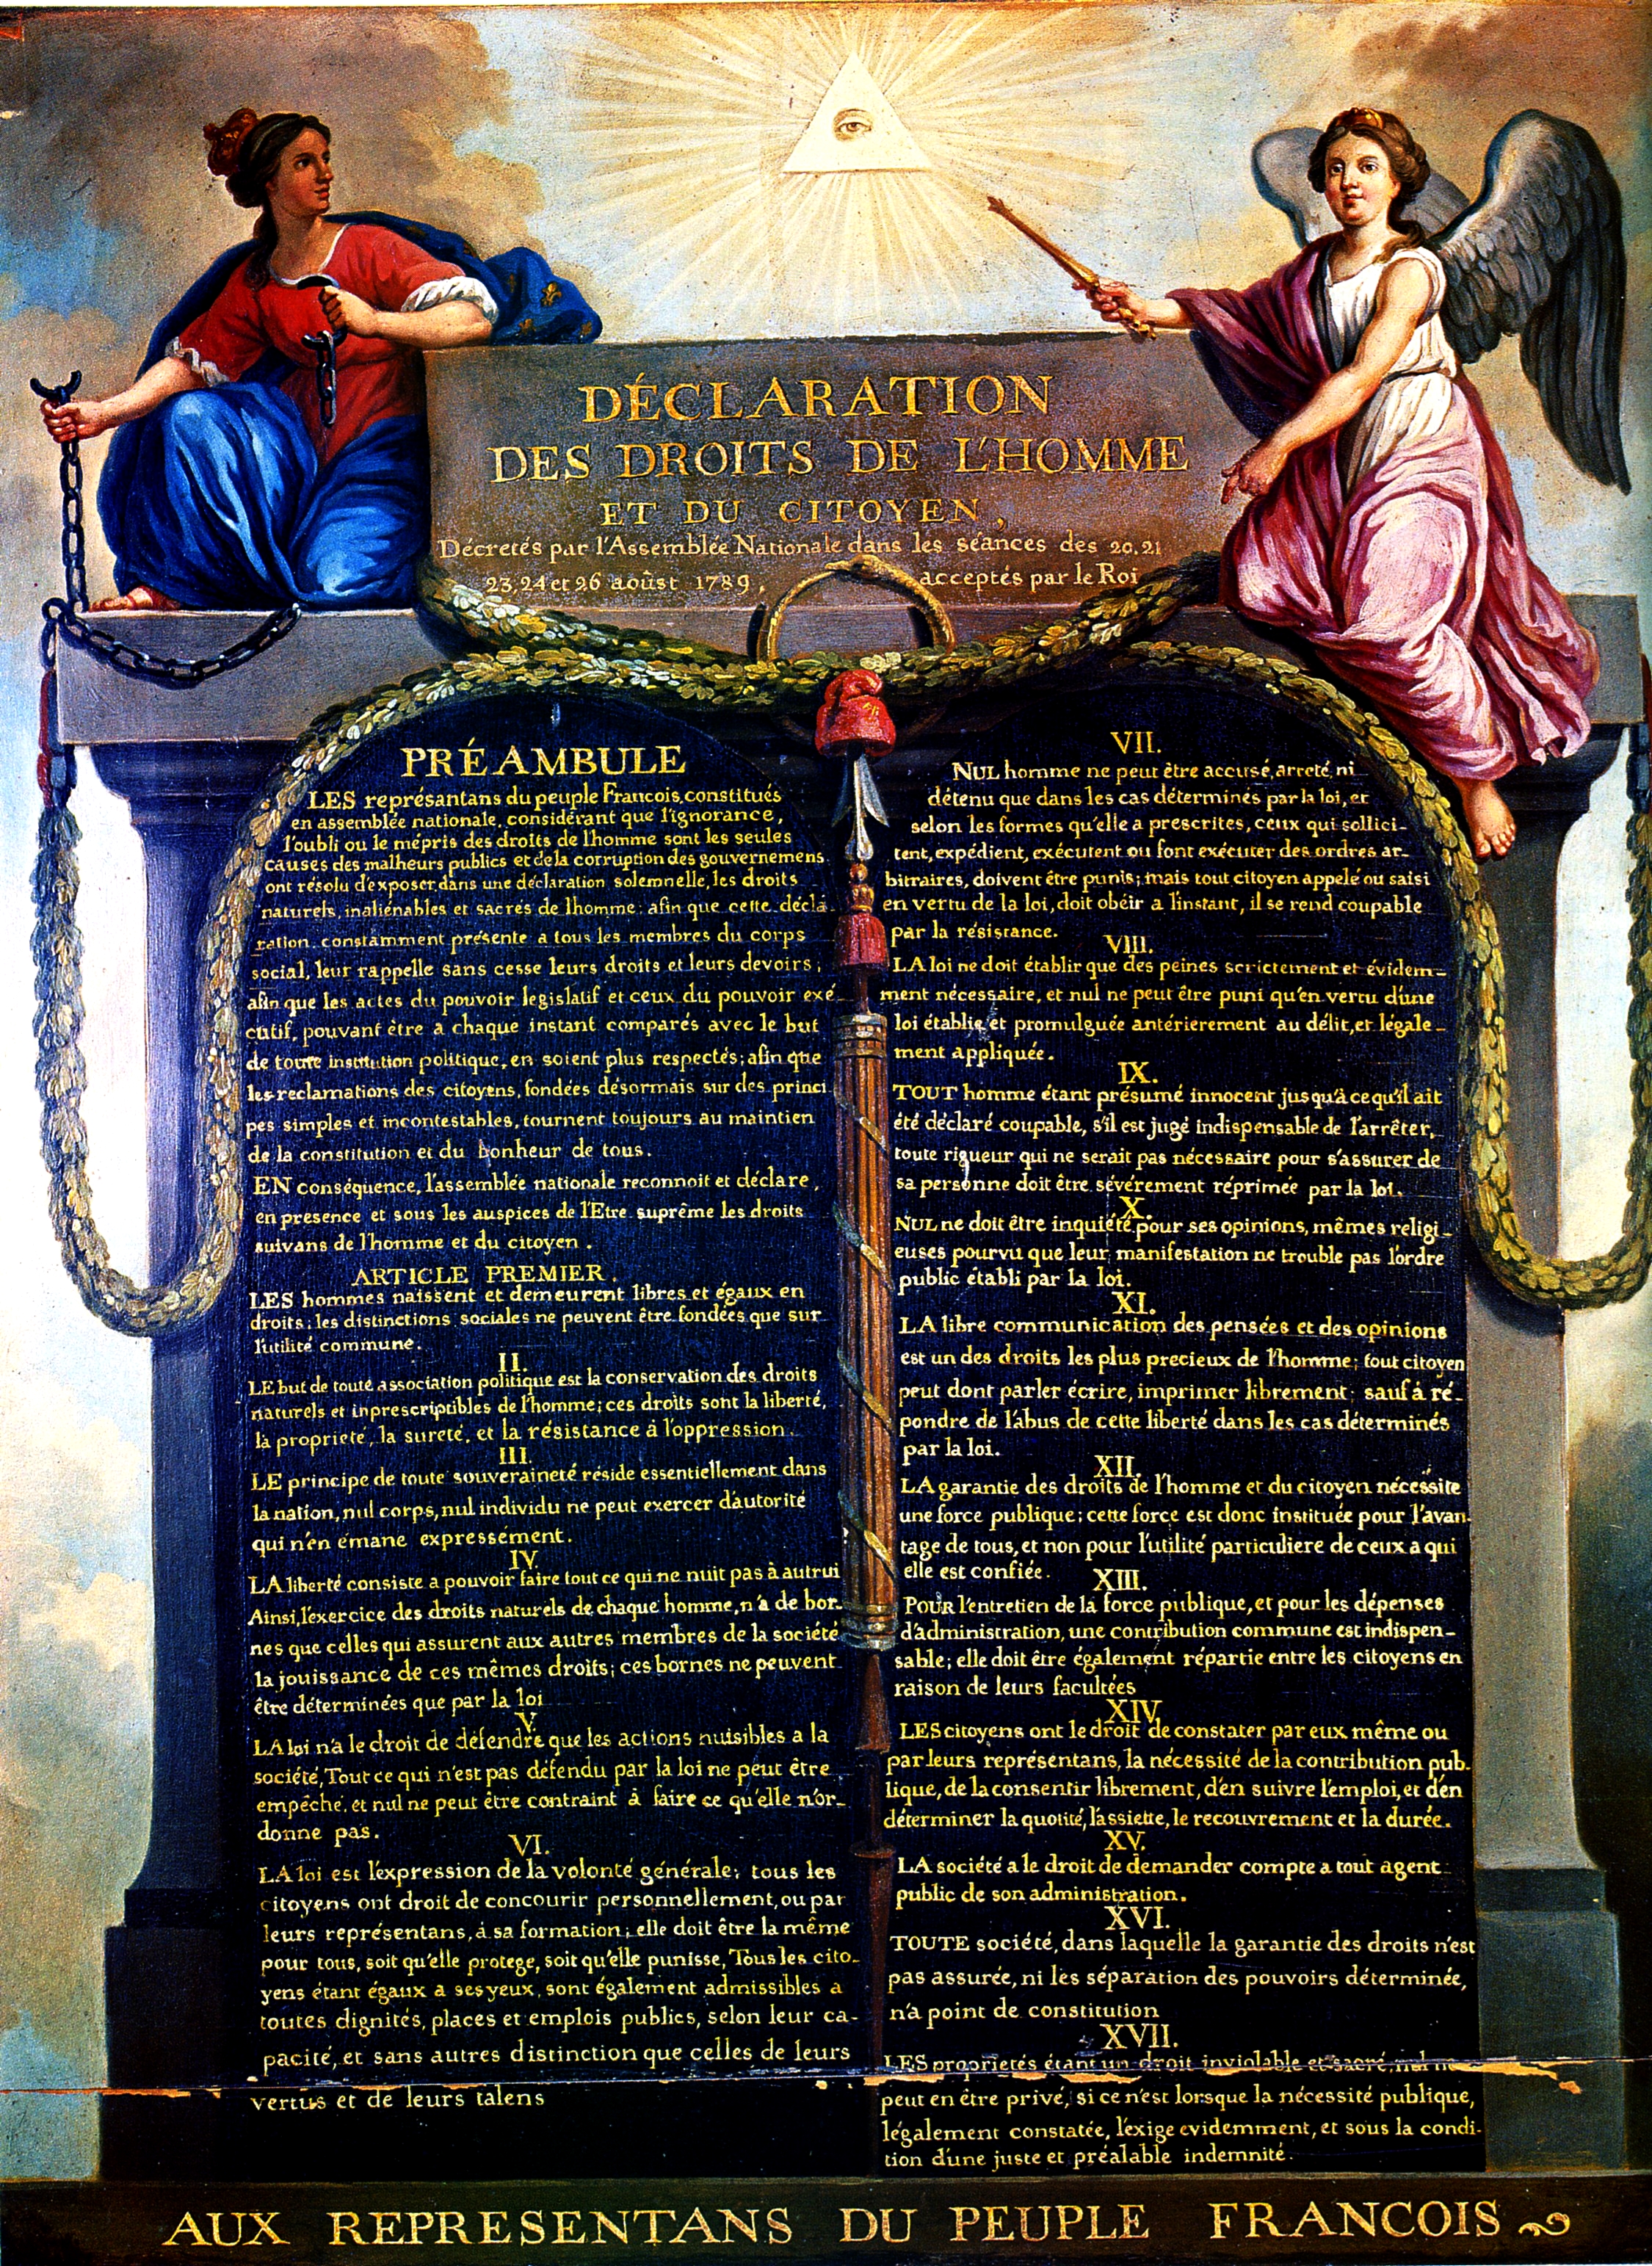 DÉCLARATION
DES DROITS DE L'HOMME
ET DU CITOYEN,
Décretés par l'Assemblée Nationale dans les séances des 20.21
23,24 et 26 aoûst 1789, acceptés par le Roi
PRÉAMBULE
LES représantans du peuple Francois, constitués
en assemblée nationale, considérant que l'ignorance,
l'oubli ou le mépris des droits de l'homme sont les seules
causes des malheurs publics et de la corruption des gouvernemens
ont résolu d'exposer, dans une déclaration solemnelle, les droits
naturels, inaliénables et sacrés de l'homme: afin que cette décla-
ration, constamment présente a tous les membres du corps
social, leur rappelle sans cesse leurs droits et leurs devoirs;
afin que les actes du pouvoir legislatif et ceux du pouvoir exé-
cutif, pouvant être a chaque instant comparés avec le but
de toute institution politique, en soient plus respectés; afin que
les reclamations des citoyens, fondées désormais sur des princi
pes simples et incontestables, tournent toujours au maintien
de la constitution et du bonheur de tous.
EN conséquence, l'assemblée nationale reconnoit et déclare,
en presence et sous les auspices de l'Etre suprême les droits
suivans de l'homme et du citoyen.
ARTICLE PREMIER.
LES hommes naissent et demeurent libres et égaux en
droits; les distinctions sociales ne peuvent être fondées que sur
l'utilité commune.
II.
LE but de toute association politique est la conservation des droits
naturels et inprescriptibles de l'homme; ces droits sont la liberté,
la propriété, la sureté, et la résistance à l'oppression.
III.
LE principe de toute souveraineté réside essentiellement dans
la nation, nul corps, nul individu ne peut exercer d'autorité
qui n'en émane expressément.
IV.
LA liberté consiste a pouvoir faire tout ce qui ne nuit pas à autrui
Ainsi, l'exercice des droits naturels de chaque homme, n'a de bor-
nes que celles qui assurent aux autres membres de la société
la jouissance de ces mêmes droits; ces bornes ne peuvent
être déterminées que par la loi
V.
LA loi n'a le droit de défendre que les actions nuisibles a la
société, Tout ce qui n'est pas défendu par la loi ne peut être
empêché, et nul ne peut être contraint à faire ce qu'elle n'or-
donne pas.
VI.
LA loi est l'expression de la volonté générale; tous les
citoyens ont droit de concourir personnellement, ou par
leurs représentans, à sa formation; elle doit être la même
pour tous, soit qu'elle protege, soit qu'elle punisse, Tous les cito-
yens étant égaux a ses yeux, sont également admissibles a
toutes dignités, places et emplois publics, selon leur ca-
pacité, et sans autres distinction que celles de leurs
vertus et de leurs talens
VII.
NUL homme ne peut être accusé, arreté, ni
détenu que dans les cas déterminés par la loi, et
selon les formes qu'elle a prescrites, ceux qui sollici-
tent, expédient, exécutent ou font exécuter des ordres ar-
bitraires, doivent être punis; mais tout citoyen appelé ou saisi
en vertu de la loi, doit obéir a l'instant, il se rend coupable
par la résistance.
VIII.
LA loi ne doit établir que des peines strictement et évidem-
ment nécessaire, et nul ne peut être puni qu'en vertu d'une
loi établie et promulguée antérierement au délit, et légale-
ment appliquée.
IX.
TOUT homme étant présumé innocent jusqu'à ce qu'il ait
été déclaré coupable, s'il est jugé indispensable de l'arrêter,
toute rigueur qui ne serait pas nécessaire pour s'assurer de
sa personne doit être sévérement réprimée par la loi.
X.
NUL ne doit être inquiété pour ses opinions, mêmes religi-
euses pourvu que leur manifestation ne trouble pas l'ordre
public établi par la loi.
XI.
LA libre communication des pensées et des opinions
est un des droits les plus precieux de l'homme; tout citoyen
peut dont parler écrire, imprimer librement; sauf à ré-
pondre de l'abus de cette liberté dans les cas déterminés
par la loi.
XII.
LA garantie des droits de l'homme et du citoyen nécessite
une force publique; cette force est donc instituée pour l'avan-
tage de tous, et non pour l'utilité particuliere de ceux a qui
elle est confiée.
XIII.
POUR l'entretien de la force publique, et pour les dépenses
d'administration, une contribution commune est indispen-
sable; elle doit être également répartie entre les citoyens en
raison de leurs facultées
XIV.
LES citoyens ont le droit de constater par eux même ou
par leurs représentans, la nécessité de la contribution pub-
lique, de la consentir librement, d'en suivre l'emploi, et d'en
déterminer la quotité, l'assiette, le recouvrement et la durée.
XV.
LA société a le droit de demander compte a tout agent
public de son administration.
XVI.
TOUTE société, dans laquelle la garantie des droits n'est
pas assurée, ni les séparation des pouvoirs déterminée,
n'a point de constitution
XVII.
LES propriétés étant un droit inviolable et sacré, nul ne
peut en être privé, si ce n'est lorsque la nécessité publique,
légalement constatée, l'exige evidemment, et sous la condi-
tion d'une juste et préalable indemnité.
AUX REPRESENTANS DU PEUPLE FRANCOIS